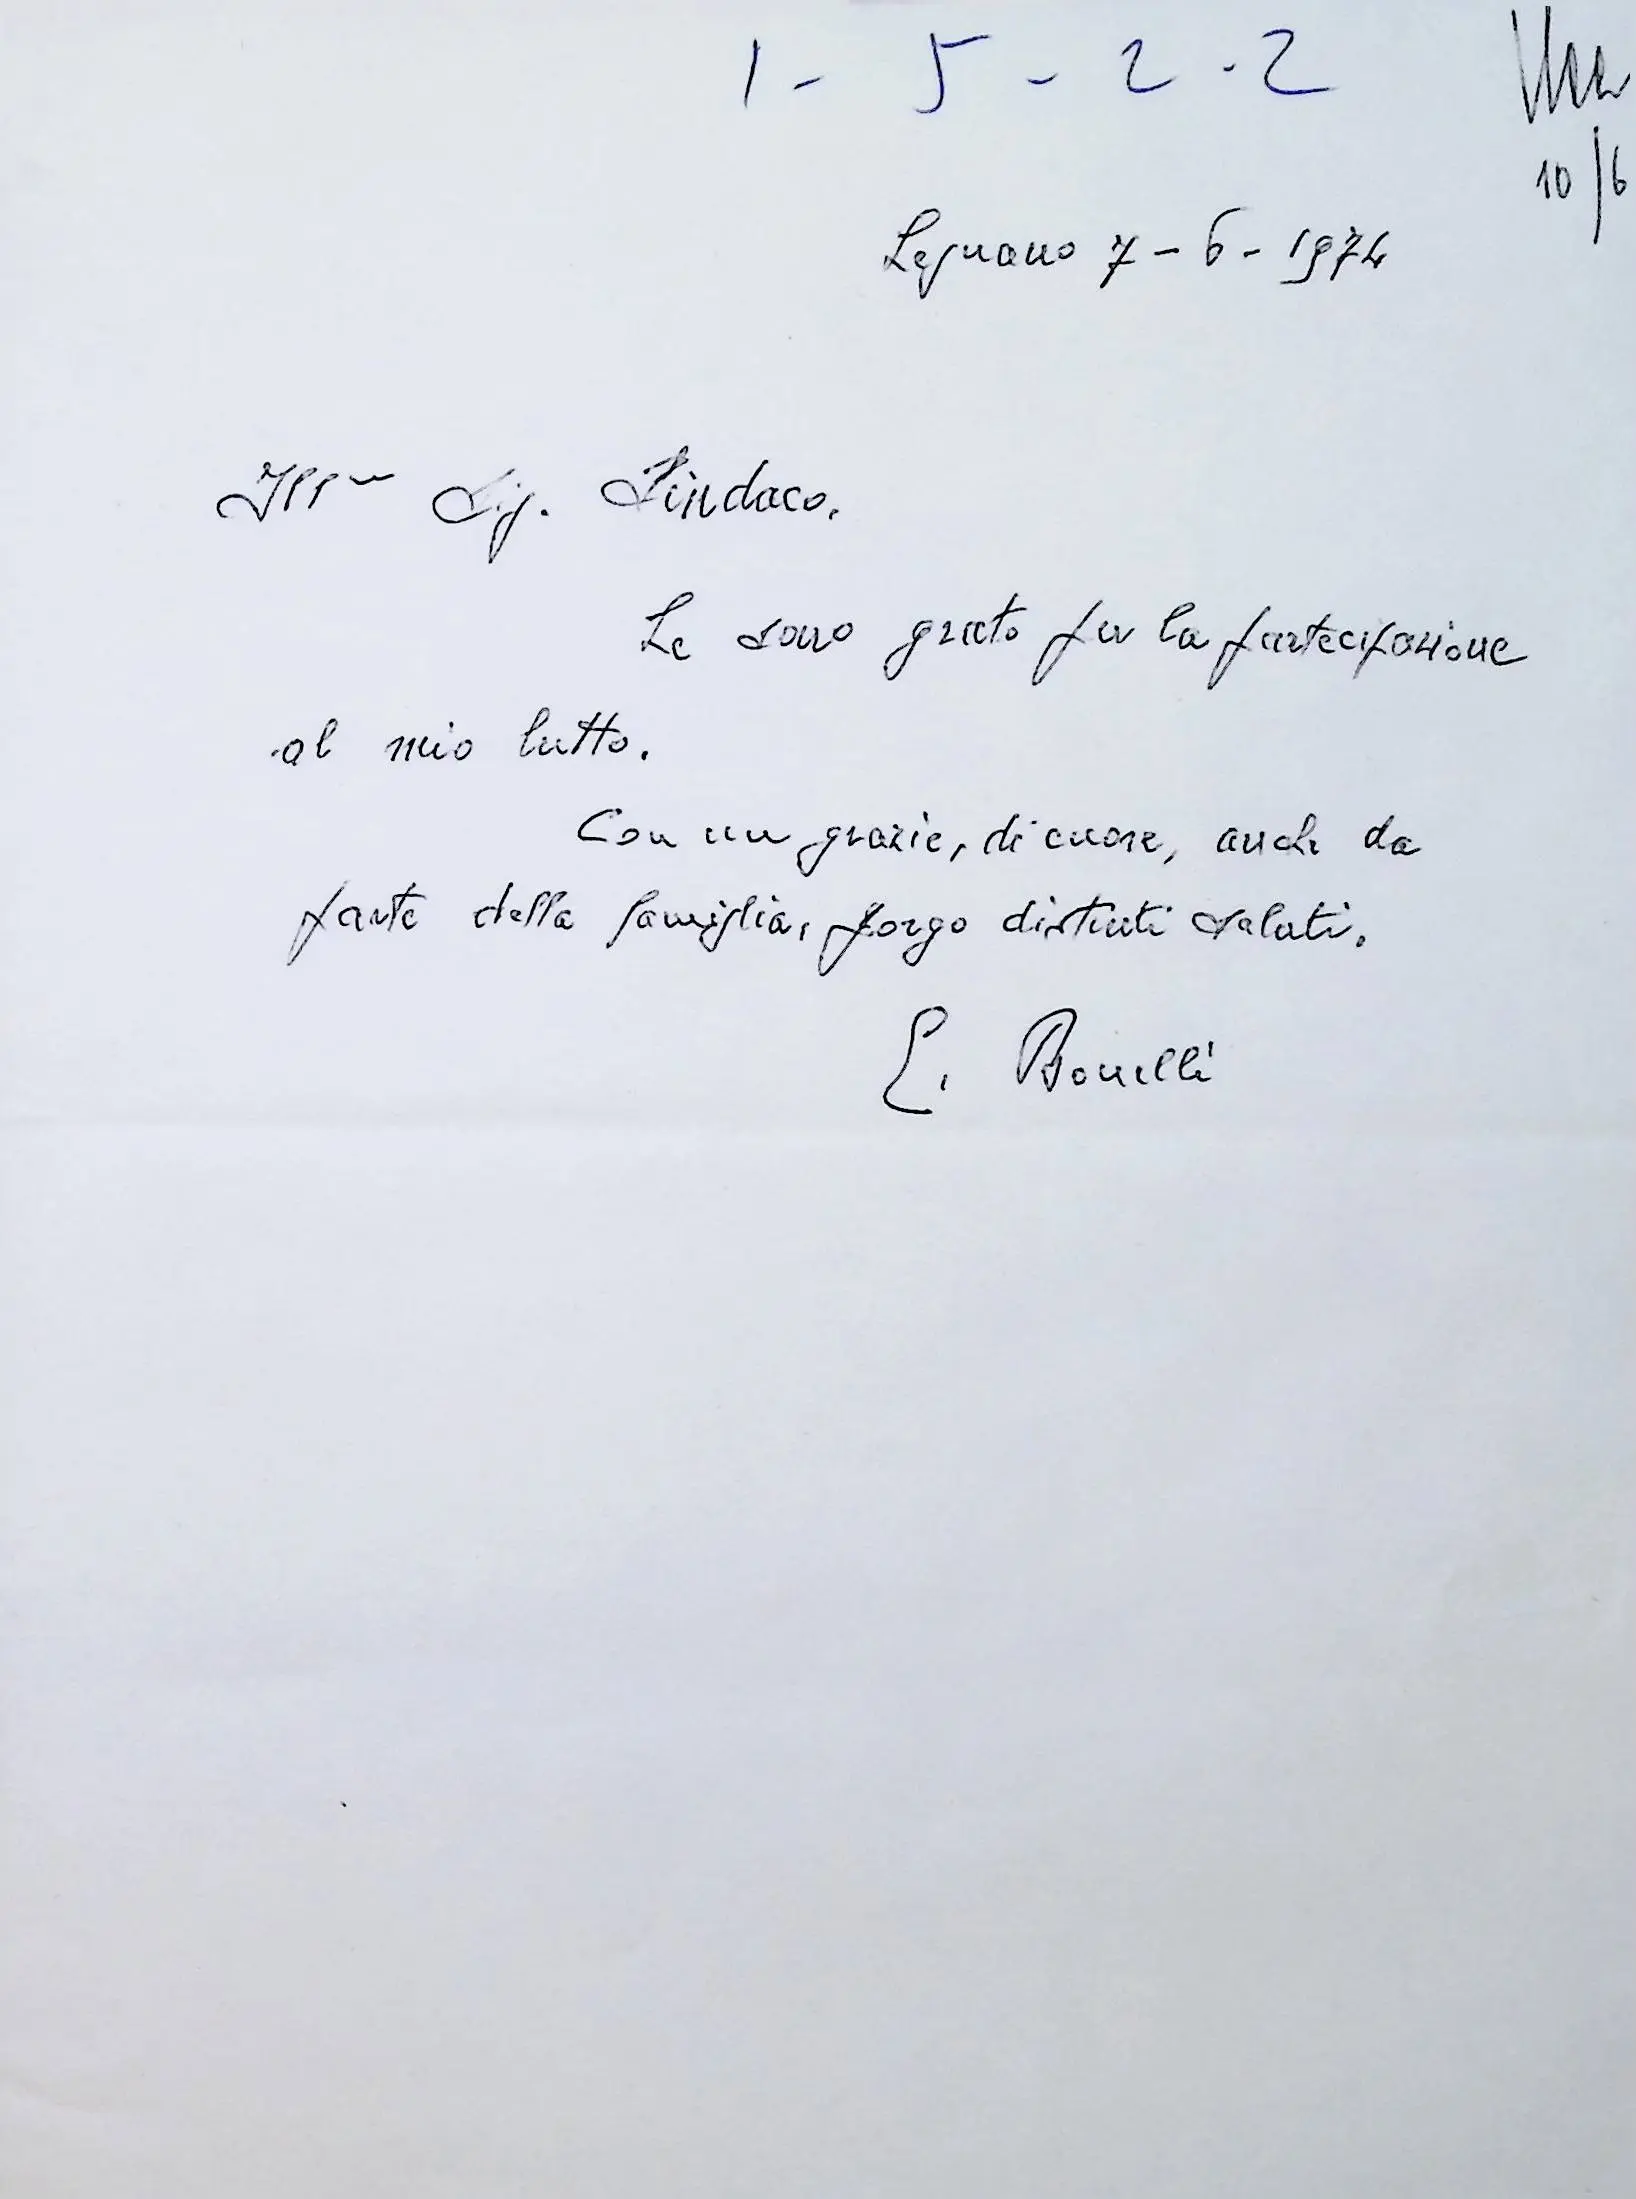 1 - 5 - 2 - 2
10/6
Legnano 7 - 6 - 1974
Ill^mo Sig. Sindaco.
Le sono grato per la partecipazione
al mio lutto.
Con un grazie, di cuore, anche da
parte della famiglia, porgo distinti saluti.
E. Bonelli